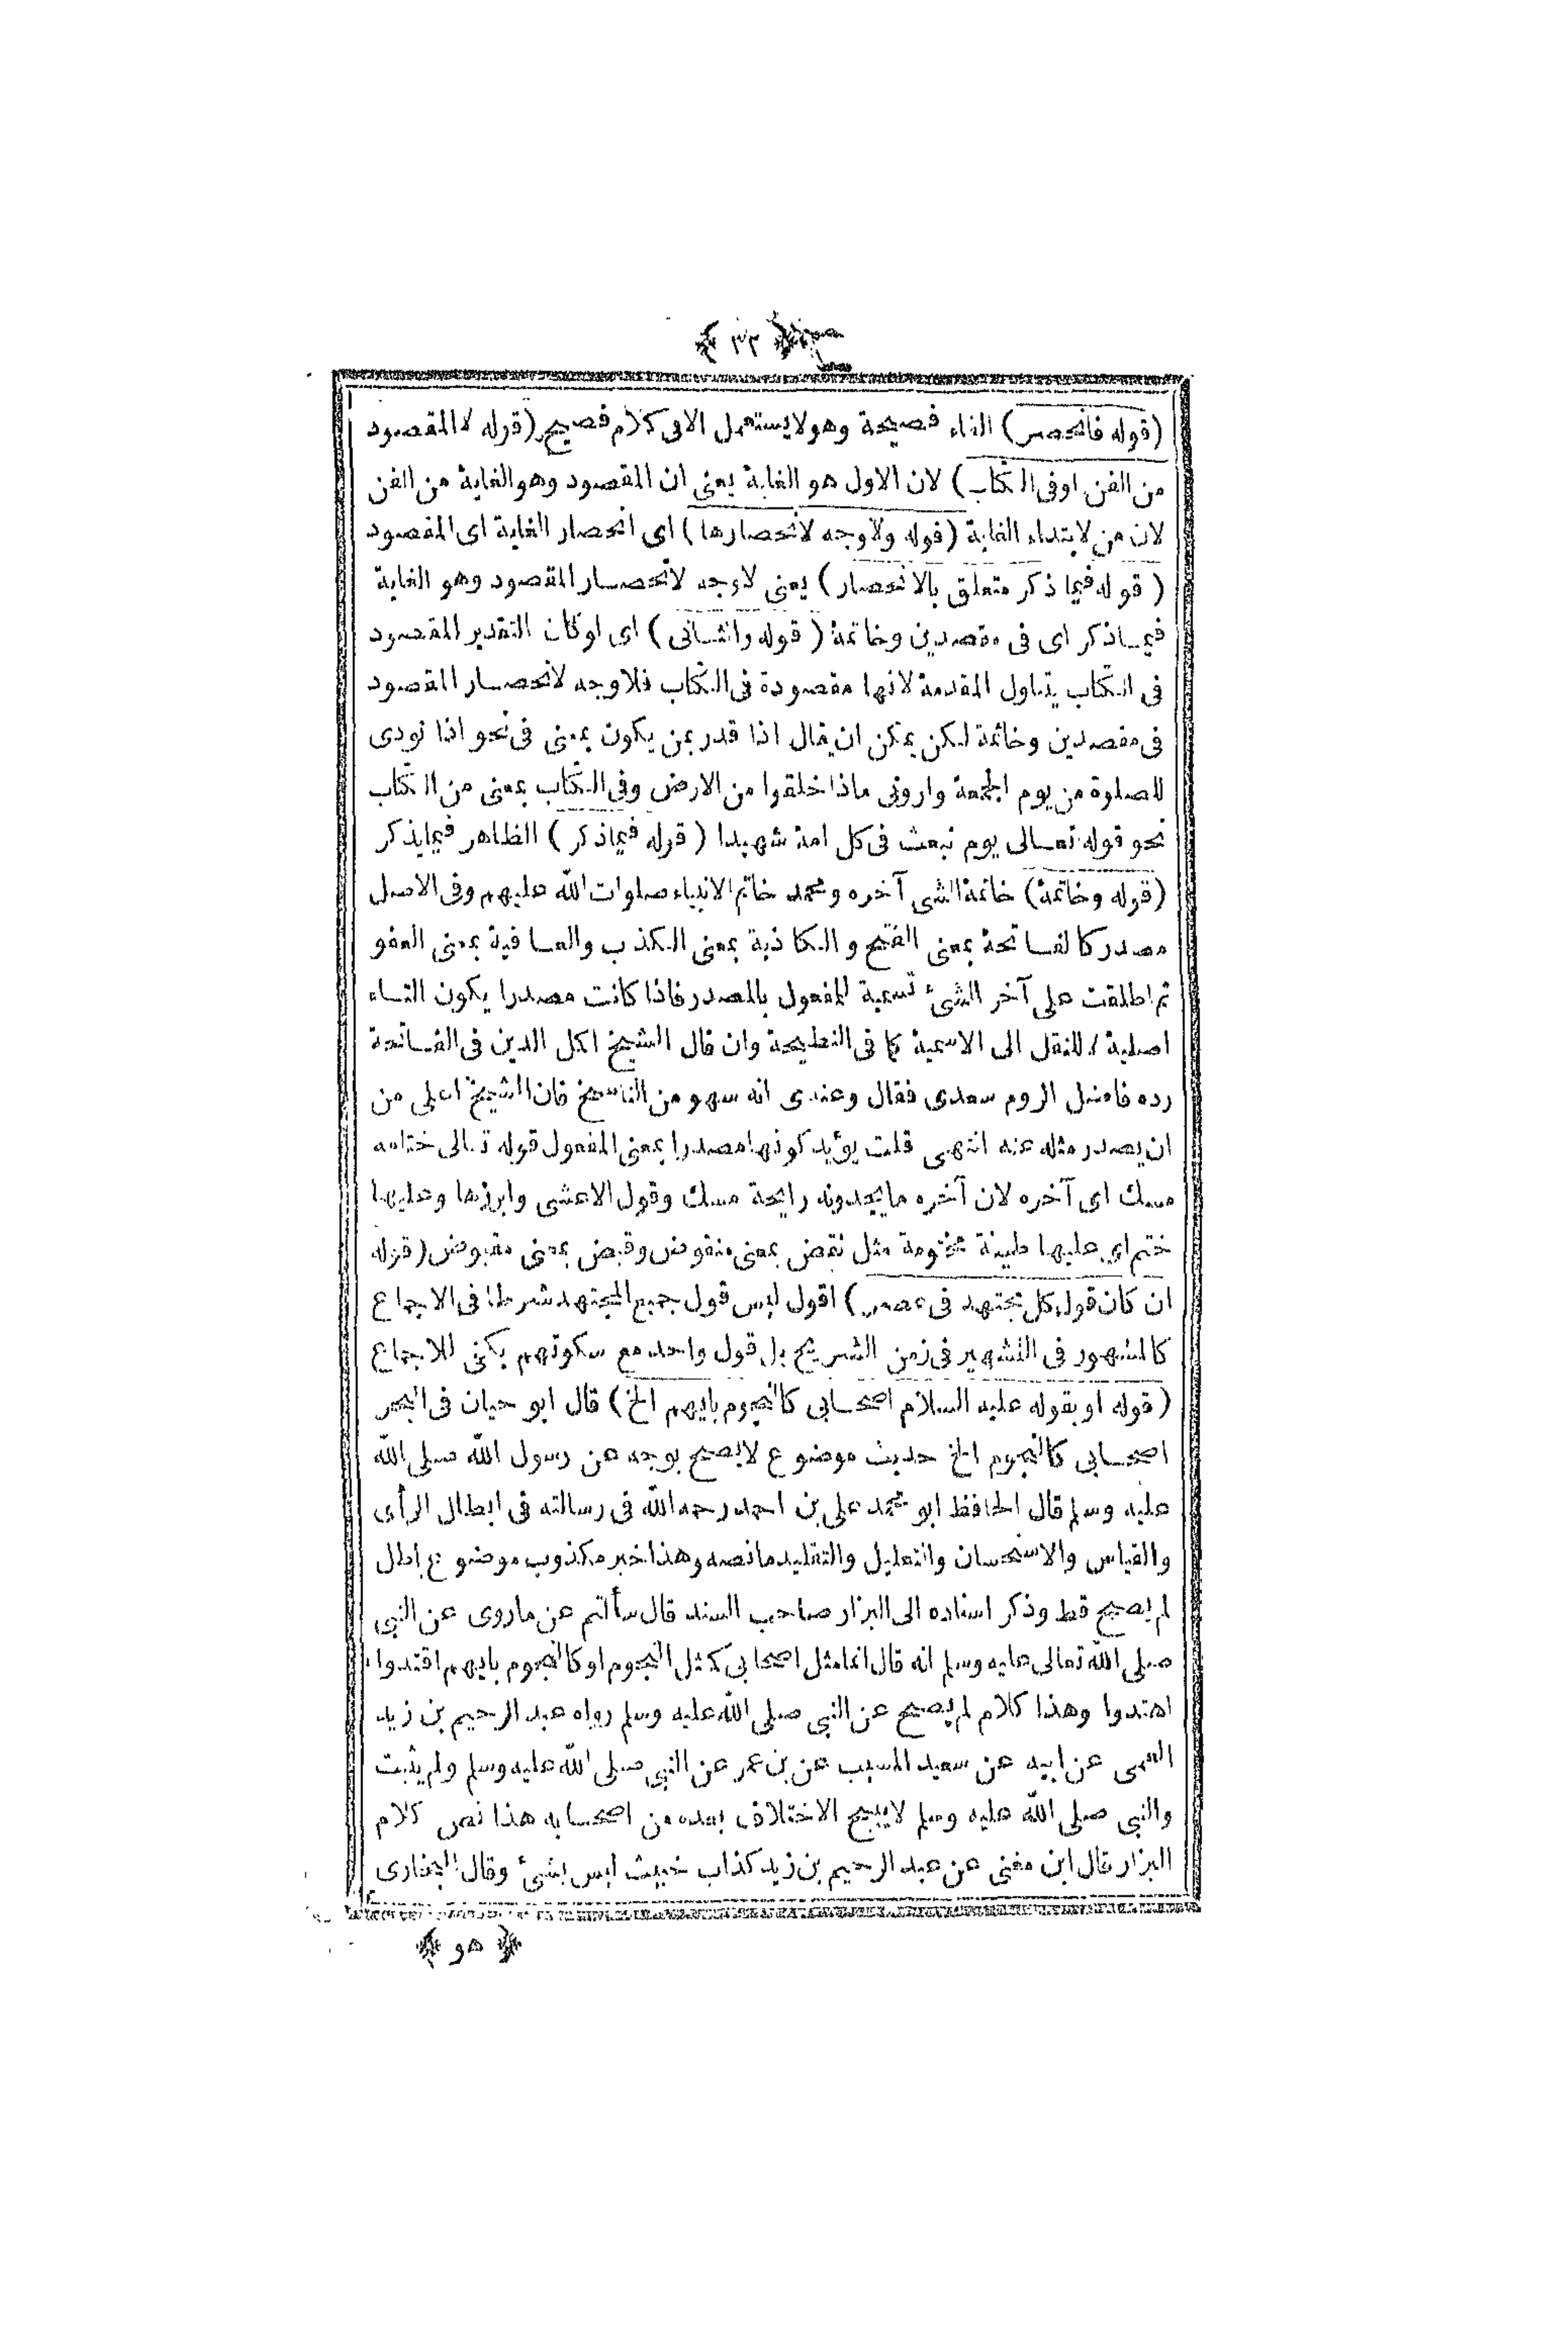 ﴿ ٣٣ ﴾
(قوله فانحصر) الفاء فصيحة وهو لا يستعمل الا فى كلام فصيح (قوله لا المقصود
من الفن او فى الكتاب) لان الاول هو الغاية يعنى ان المقصود وهو الغاية من الفن
لان من لابتداء الغاية (قوله ولا وجه لانحصارها) اى انحصار الغاية اى المقصود
(قوله فيما ذكر متعلق بالانحصار) يعنى لا وجه لانحصار المقصود وهو الغاية
فيما ذكر اى فى مقصدين وخاتمة (قوله والثانى) اى او كان التقدير المقصود
فى الكتاب يتناول المقدمة لانها مقصودة فى الكتاب فلا وجه لانحصار المقصود
فى مقصدين وخاتمة لكن يمكن ان يقال اذا قدر بمن يكون بمعنى فى نحو اذا نودى
للصلوة من يوم الجمعة وارونى ماذا خلقوا من الارض وفى الكتاب بمعنى من الكتاب
نحو قوله تعالى يوم نبعث فى كل امة شهيدا (قوله فيما ذكر) الظاهر فيما يذكر
(قوله وخاتمة) خاتمة الشى آخره ومحمد خاتم الانبياء صلوات الله عليهم وفى الاصل
مصدر كالفاتحة بمعنى الفتح والكاذبة بمعنى الكذب والعافية بمعنى العفو
ثم اطلقت على آخر الشئ تسمية للمفعول بالمصدر فاذا كانت مصدرا يكون التاء
اصلية لا للنقل الى الاسمية كما فى النطيحة وان قال الشيخ اكمل الدين فى الفاتحة
رده فاضل الروم سعدى فقال وعندى انه سهو من الناسخ فان الشيخ اعلى من
ان يصدر مثله عنه انتهى قلت يؤيد كونها مصدرا بمعنى المفعول قوله تعالى ختامه
مسك اى آخره لان آخره ما يجدونه رايحة مسك وقول الاعشى وابرزها وعليها
ختم اى عليها طينة مختومة مثل نقض بمعنى منقوض وقبض بمعنى مقبوض (قوله
ان كان قول كل مجتهد فى عصر) اقول ليس قول جميع المجتهد شرطا فى الاجماع
كالمشهور فى التشهير فى زمن الشريح بل قول واحد مع سكوتهم يكفى للاجماع
(قوله او بقوله عليه السلام اصحابى كالنجوم بايهم الخ) قال ابو حيان فى البحر
اصحابى كالنجوم الخ حديث موضوع لا يصح بوجه عن رسول الله صلى الله
عليه وسلم قال الحافظ ابو محمد على بن احمد رحمه الله فى رسالته فى ابطال الرأى
والقياس والاستحسان والتعليل والتقليد ما نصه وهذا خبر مكذوب موضوع باطل
لم يصح قط وذكر اسناده الى البزار صاحب السند قال سألتم عن ما روى عن النبى
صلى الله تعالى عليه وسلم انه قال انما مثل اصحابى كمثل النجوم او كالنجوم بايهم اقتدوا
اهتدوا وهذا كلام لم يصح عن النبى صلى الله عليه وسلم رواه عبد الرحيم بن زيد
العمى عن ابيه عن سعيد المسيب عن بن عمر عن النبى صلى الله عليه وسلم ولم يثبت
والنبى صلى الله عليه وسلم لا يبيح الاختلاف بعده من اصحابه هذا نص كلام
البزار قال ابن مغنى عن عبد الرحيم بن زيد كذاب خبيث ليس بشئ وقال البخارى
﴿ هو ﴾